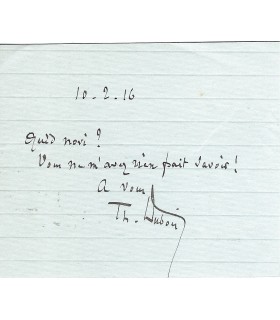 10.2.16
Quid novi?
Vous ne m'avez rien fait savoir!
A vous
Th. Dubois